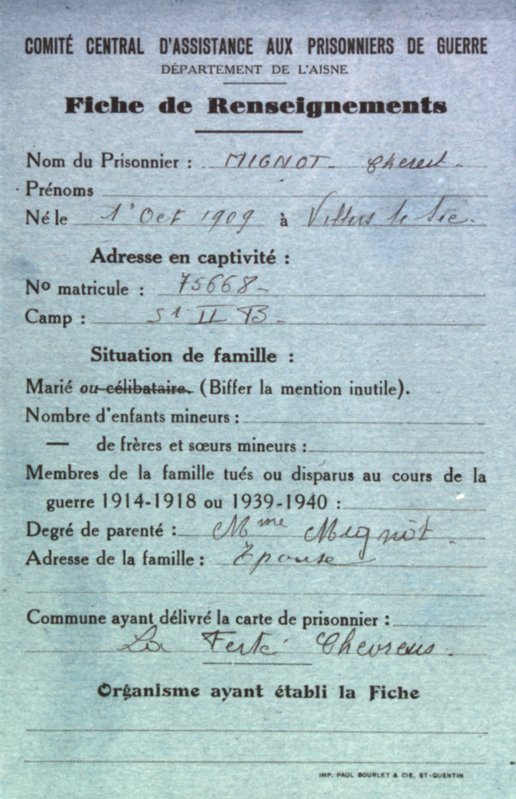 COMITÉ CENTRAL D'ASSISTANCE AUX PRISONNIERS DE GUERRE
DÉPARTEMENT DE L'AISNE
Fiche de Renseignements
Nom du Prisonnier : MIGNOT
Prénoms
Né le 1er Oct 1909 à Villers le Sec.
Adresse en captivité :
No matricule : 75668
Camp : St II B
Situation de famille :
Marié ou célibataire. (Biffer la mention inutile).
Nombre d'enfants mineurs :
— de frères et sœurs mineurs :
Membres de la famille tués ou disparus au cours de la
guerre 1914-1918 ou 1939-1940 :
Degré de parenté : Mme Mignot.
Adresse de la famille : Epouse
Commune ayant délivré la carte de prisonnier :
La Ferté Chevresis.
Organisme ayant établi la Fiche
IMP. PAUL BOURLET & CIE, ST-QUENTIN